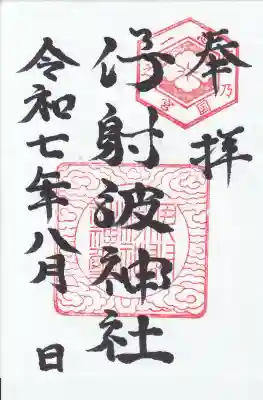 奉拝
伊射波神社
令和七年八月 日